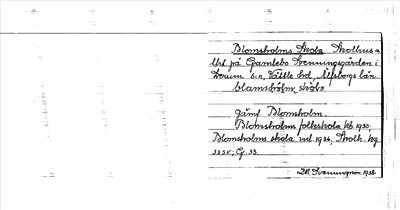 Blomsholms Skola Skolhus a
Uht på Gamlebo Svenningsgården i
Lerum s.n, Vättle hd, Älfsborgs län.
blomshólm skóla
Jämf Blomsholm.
Blomsholms folkskola kb 1930,
Blomsholms skola md. 1934, Skolk. kg
33 SV; Gs 33.
Svenningson 1938